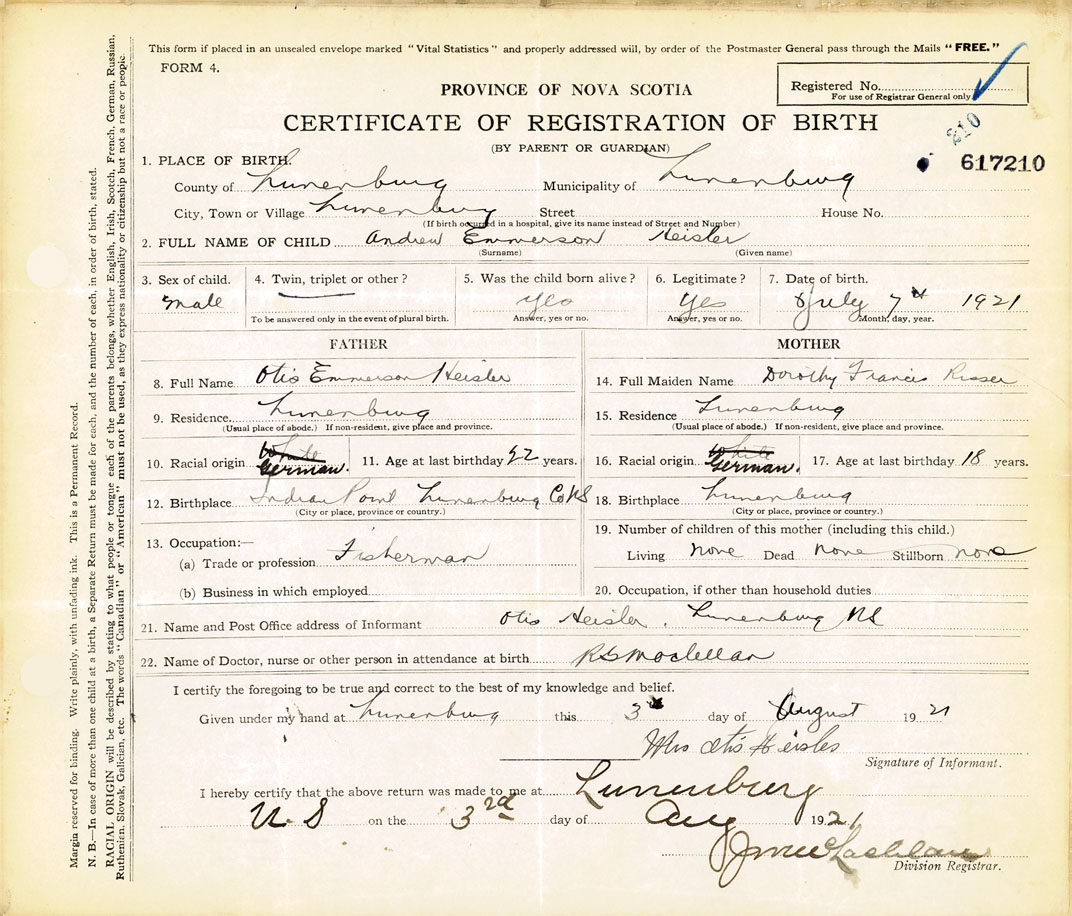 This form if placed in an unsealed envelope marked "Vital Statistics" and properly addressed will, by order of the Postmaster General pass through the Mails "FREE."
FORM 4.
Registered No.
For use of Registrar General only
PROVINCE OF NOVA SCOTIA
CERTIFICATE OF REGISTRATION OF BIRTH
(BY PARENT OR GUARDIAN)
210
617210
1. PLACE OF BIRTH.
County of Lunenburg Municipality of Lunenburg
City, Town or Village Lunenburg Street House No.
(If birth occurred in a hospital, give its name instead of Street and Number)
2. FULL NAME OF CHILD Andrew Emmerson Heisler
(Surname) (Given name)
3. Sex of child. 4. Twin, triplet or other? 5. Was the child born alive? 6. Legitimate? 7. Date of birth.
male yes Yes July 7th 1921
To be answered only in the event of plural birth. Answer, yes or no. Answer, yes or no. Month, day, year.
FATHER
8. Full Name Otis Emmerson Heisler
9. Residence Lunenburg
(Usual place of abode.) If non-resident, give place and province.
10. Racial origin White German. 11. Age at last birthday 22 years.
12. Birthplace Indian Point Lunenburg Co NS
(City or place, province or country.)
13. Occupation:—
(a) Trade or profession Fisherman
(b) Business in which employed
MOTHER
14. Full Maiden Name Dorothy Francis Risser
15. Residence Lunenburg
(Usual place of abode.) If non-resident, give place and province.
16. Racial origin White German. 17. Age at last birthday 18 years.
18. Birthplace Lunenburg
(City or place, province or country.)
19. Number of children of this mother (including this child.)
Living none Dead none Stillborn none
20. Occupation, if other than household duties
21. Name and Post Office address of Informant Otis Heisler. Lunenburg NS
22. Name of Doctor, nurse or other person in attendance at birth
I certify the foregoing to be true and correct to the best of my knowledge and belief.
Given under my hand at Lunenburg this 3rd day of August 1921
Mrs Otis Heisler
Signature of Informant.
I hereby certify that the above return was made to me at Lunenburg
N.S on the 3rd day of Aug 1921
Division Registrar.
Margin reserved for binding. Write plainly, with unfading ink. This is a Permanent Record.
N. B.—In case of more than one child at a birth, a Separate Return must be made for each, and the number of each, in order of birth, stated.
RACIAL ORIGIN will be described by stating to what people or tongue each of the parents belongs, whether English, Irish, Scotch, French, German, Russian,
Ruthenian, Slovak, Galician, etc. The words "Canadian" or "American" must not be used, as they express nationality or citizenship but not a race or people